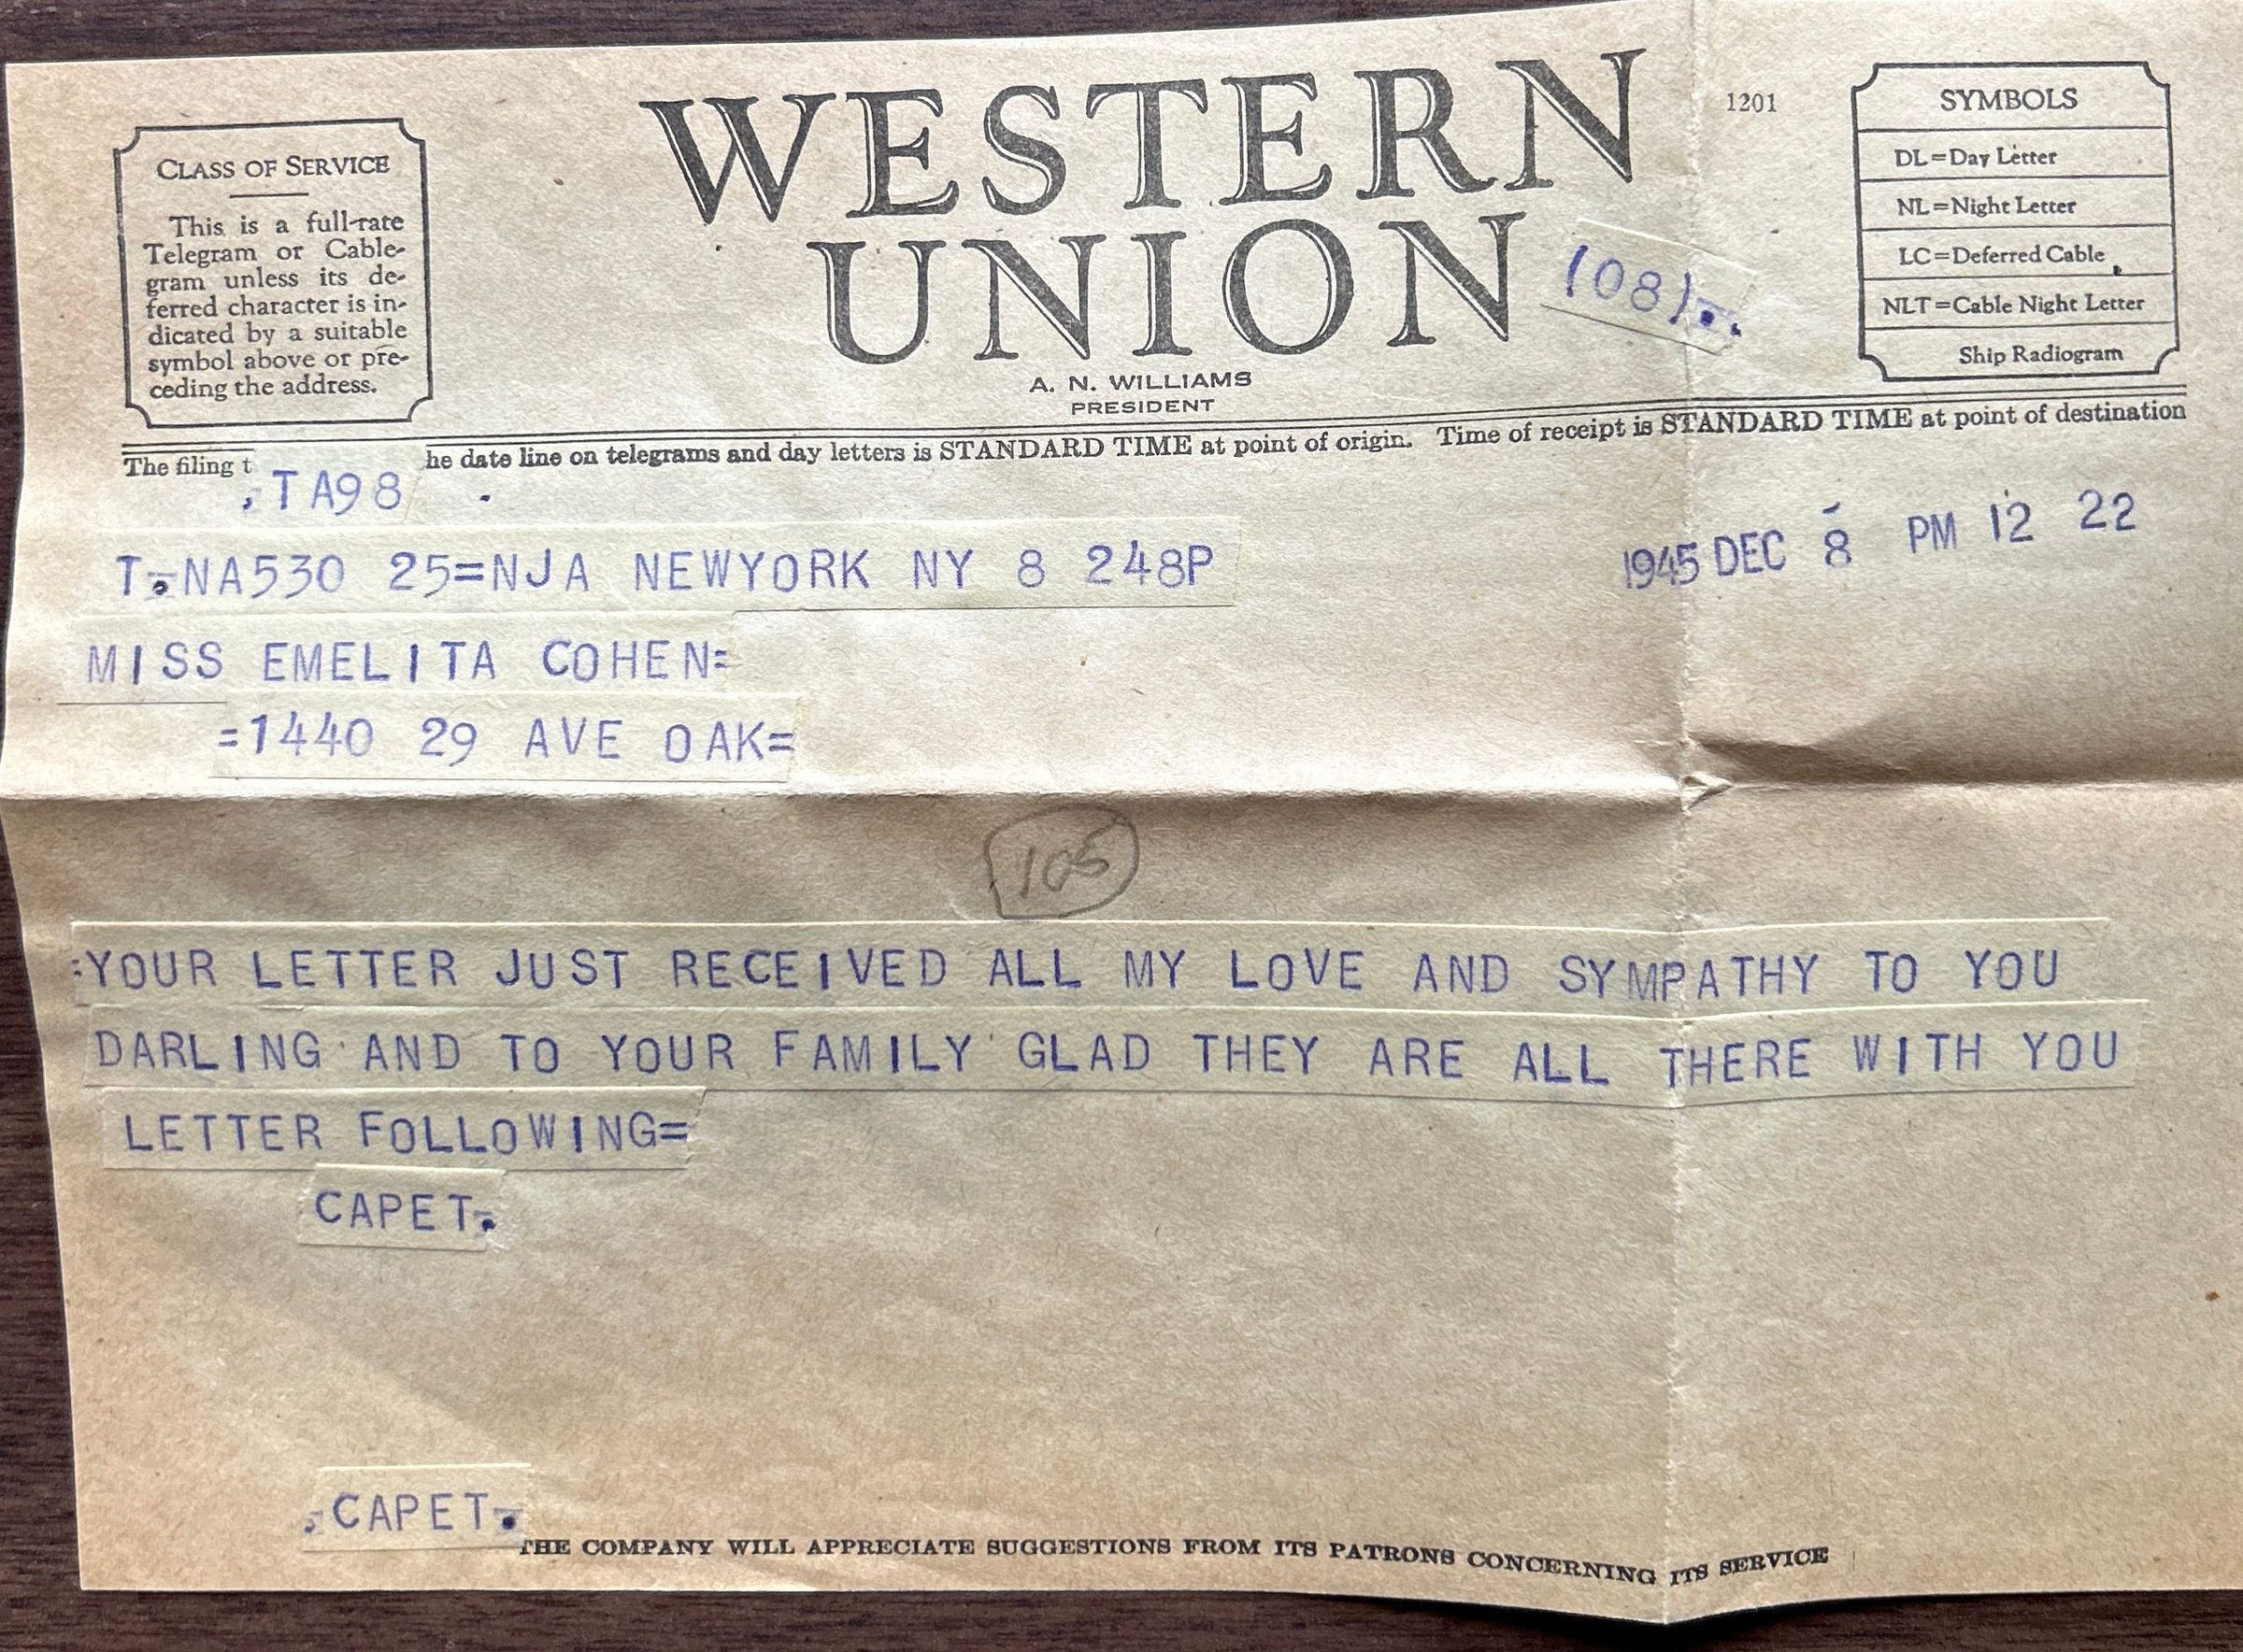 WESTERN
UNION
1201
(08).
A. N. WILLIAMS
PRESIDENT
CLASS OF SERVICE
This is a full-rate
Telegram or Cable-
gram unless its de-
ferred character is in-
dicated by a suitable
symbol above or pre-
ceding the address.
SYMBOLS
DL=Day Letter
NL=Night Letter
LC=Deferred Cable
NLT=Cable Night Letter
Ship Radiogram
The filing t he date line on telegrams and day letters is STANDARD TIME at point of origin. Time of receipt is STANDARD TIME at point of destination
TA98
1945 DEC 8 PM 12 22
T.NA530 25=NJA NEWYORK NY 8 248P
MISS EMELITA COHEN=
=1440 29 AVE OAK=
105
:YOUR LETTER JUST RECEIVED ALL MY LOVE AND SYMPATHY TO YOU
DARLING AND TO YOUR FAMILY GLAD THEY ARE ALL THERE WITH YOU
LETTER FOLLOWING=
CAPET.
CAPET.
THE COMPANY WILL APPRECIATE SUGGESTIONS FROM ITS PATRONS CONCERNING ITS SERVICE